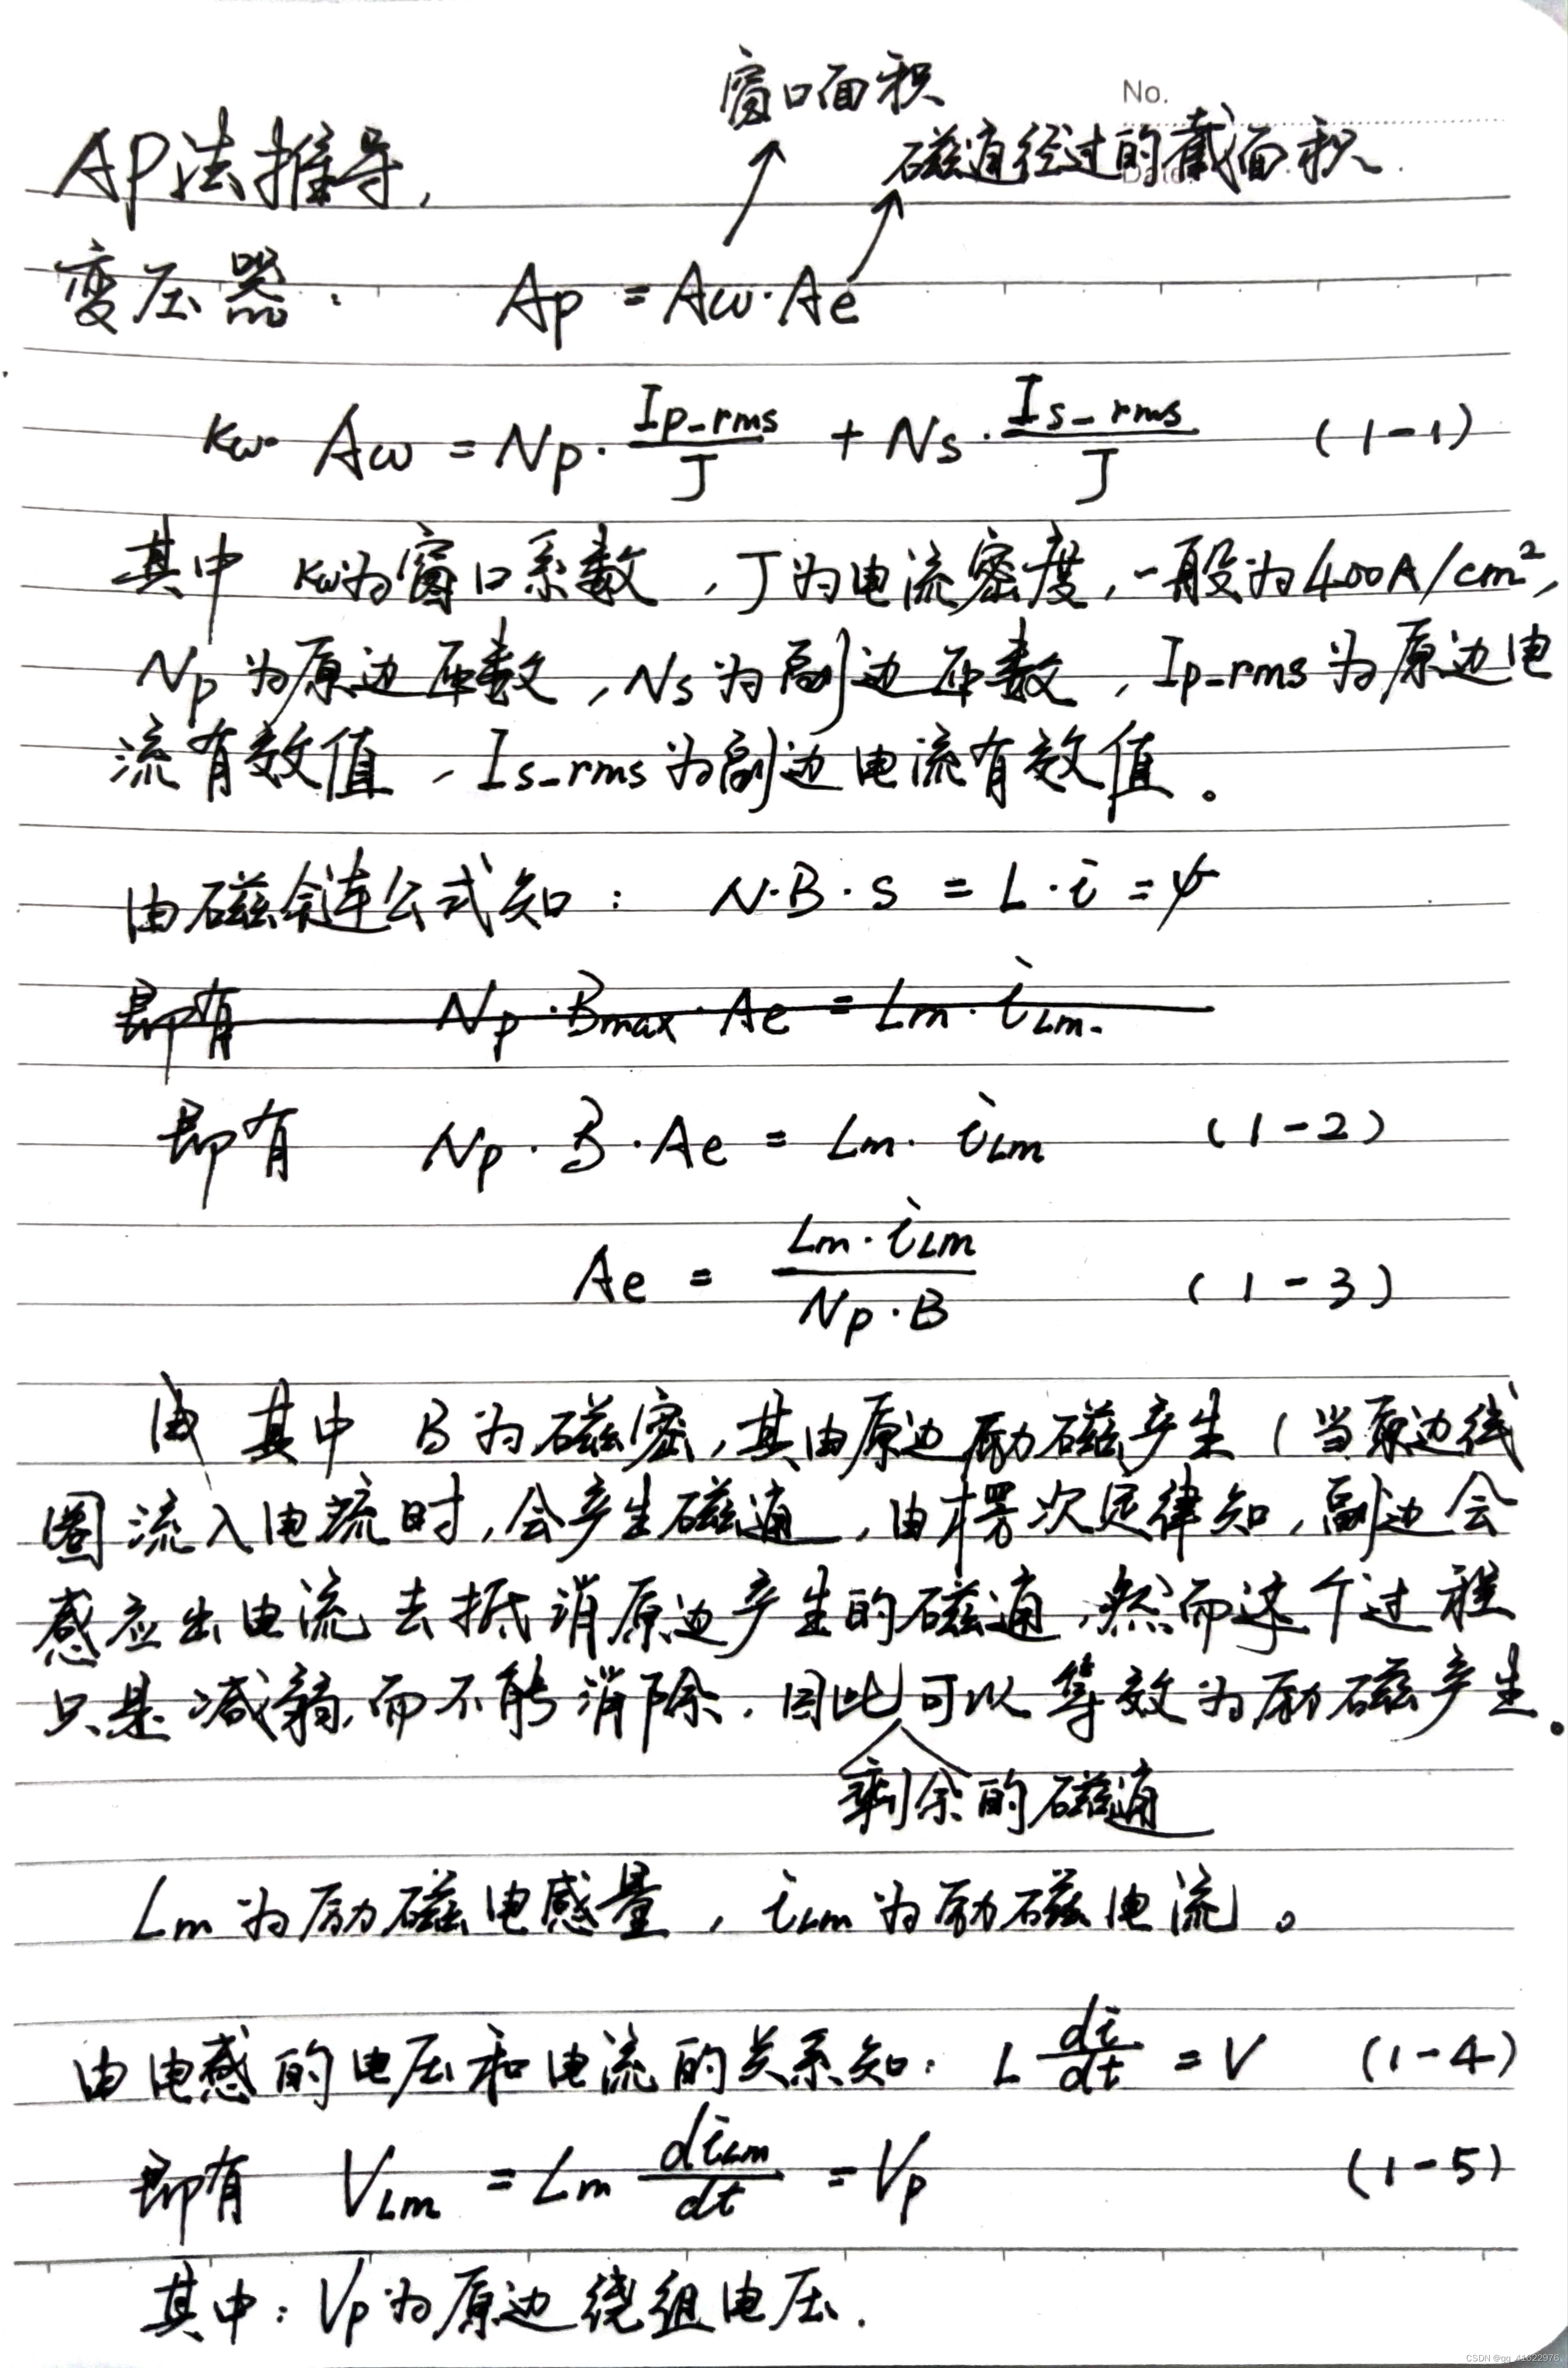 窗口面积
No.
磁通经过的截面积.
AP法推导.
变压器: Ap = Aw·Ae
Kw· Aw = Np·Ip_rms/J + Ns·Is_rms/J (1-1)
其中 Kw为窗口系数,J为电流密度,一般为400A/cm²,
Np为原边匝数,Ns为副边匝数,Ip_rms为原边电
流有效值,Is_rms为副边电流有效值。
由磁链公式知: N·B·S = L·i = ψ
即有 Np·Bmax·Ae = Lm·iLm.
即有 Np·B·Ae = Lm·iLm (1-2)
Ae = Lm·iLm/Np·B (1-3)
由 其中 B为磁密,其由原边励磁产生(当原边线
圈流入电流时,会产生磁通,由楞次定律知,副边会
感应出电流去抵消原边产生的磁通,然而这个过程
只是减弱,而不能消除.因此可以等效为励磁产生。
剩余的磁通
Lm为励磁电感量,iLm为励磁电流。
由电感的电压和电流的关系知: L di/dt = V (1-4)
即有 VLm = Lm diLm/dt = Vp (1-5)
其中:Vp为原边绕组电压.
CSDN @qq_41622978